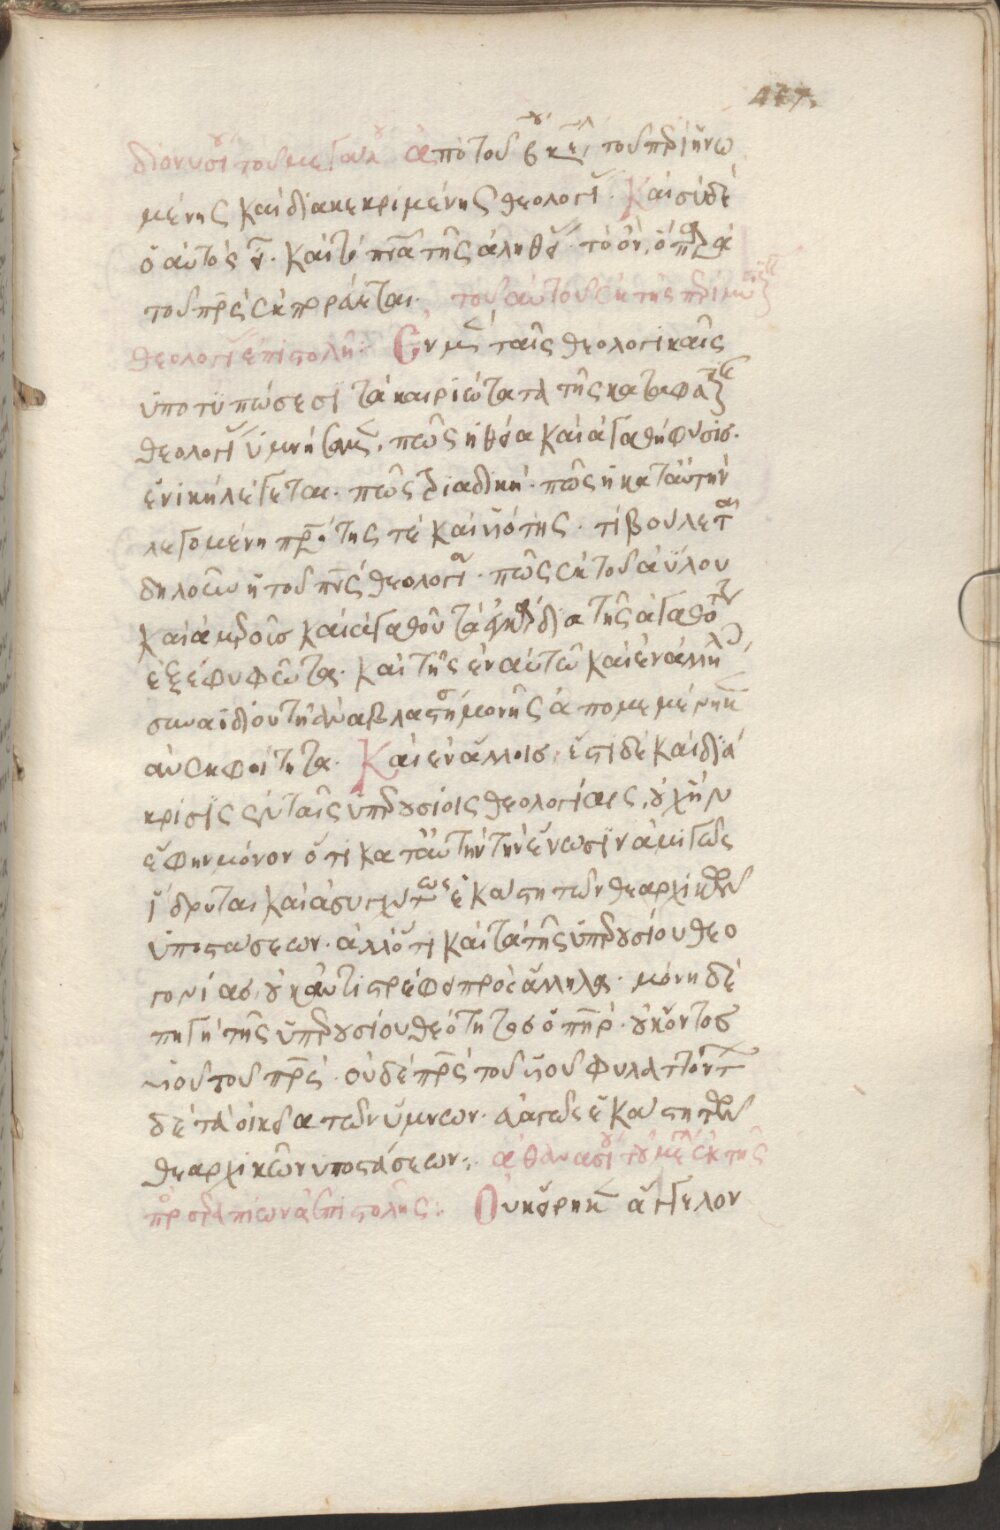 διονυσί τοῦ μεγάλ ἀπὸ τοῦ β κε, τοῦ περὶ ἡνω
μένης καὶ διακεκριμένης θεολογί. Καὶ σὺ δὲ
ὁ αὐτὸς. καὶ τὸ πνα τῆς ἀληθεί. τὸ ὂν, ὁ παρὰ
τοῦ πρς ἐκπορεύεται. τοῦ αὐτοῦ ἐκ τῆς περὶ μυ
θεολογί ἐπιστολῆ. Ἐν μὲν ταῖς θεολογικαῖς
ὑποτυπώσεσι τὰ κυριώτατα τῆς καταφα
θεολογί ὑμνήσαμεν. πῶς ἡ θεία καὶ ἀγαθὴ φύσις.
ἑνικὴ λέγεται. πῶς τριαδική. πῶς ἡ κατ' αὐτὴν
λεγομένη πρότης τὲ καὶ υἱότης. τί βούλετ
δηλοῦν ἡ τοῦ πνς θεολογί. πῶς ἐκ τοῦ ἀΰλου
καὶ ἀμεροῦς καὶ ἀγαθοῦ τὰ ἐγκάρδια τῆς ἀγαθό
ἐξέφυ φῶτα. καὶ τῆς ἐν αὐτῶ καὶ ἐν ἀλλή
συναϊδίου τῆ ἀναβλαστή μονῆς ἀπομεμένηκ
ἀνεκφοίτητα. Καὶ ἐν ἄλλοις. ἔστι δὲ καὶ διά
κρισις ἐν ταῖς ὑπερουσίοις θεολογίαις, οὐχ ἣν
ἔφην μόνον ὅτι κατ' αὐτὴν τὴν ἕνωσιν ἀμιγῶς
ἵδρυται καὶ ἀσυγχύτως ἑκάστη τῶν θεαρχικῶν
ὑποστάσεων. ἀλλ' ὅτι καὶ τὰ τῆς ὑπερουσίου θεο
γονίας, οὐκ ἀντιστρέφει πρὸς ἄλληλα. μόνη δὲ
πηγὴ τῆς ὑπερουσίου θεότητος ὁ πηρ. οὐκ ὄντος
υἱοῦ τοῦ πρς. οὐδὲ πρς τοῦ υἱοῦ φυλαττόντ
δὲ τὰ οἰκεῖα τῶν ὕμνων. εὐαγῶς ἑκάστη τῶν
θεαρχικῶν ὑποστάσεων:. ἀθανασί τοῦ μεγάλ ἐκ τῆς
πρὸς σεραπίωνα ἐπιστολῆς:. Οὐκ εἴρηκ ἄγγελον